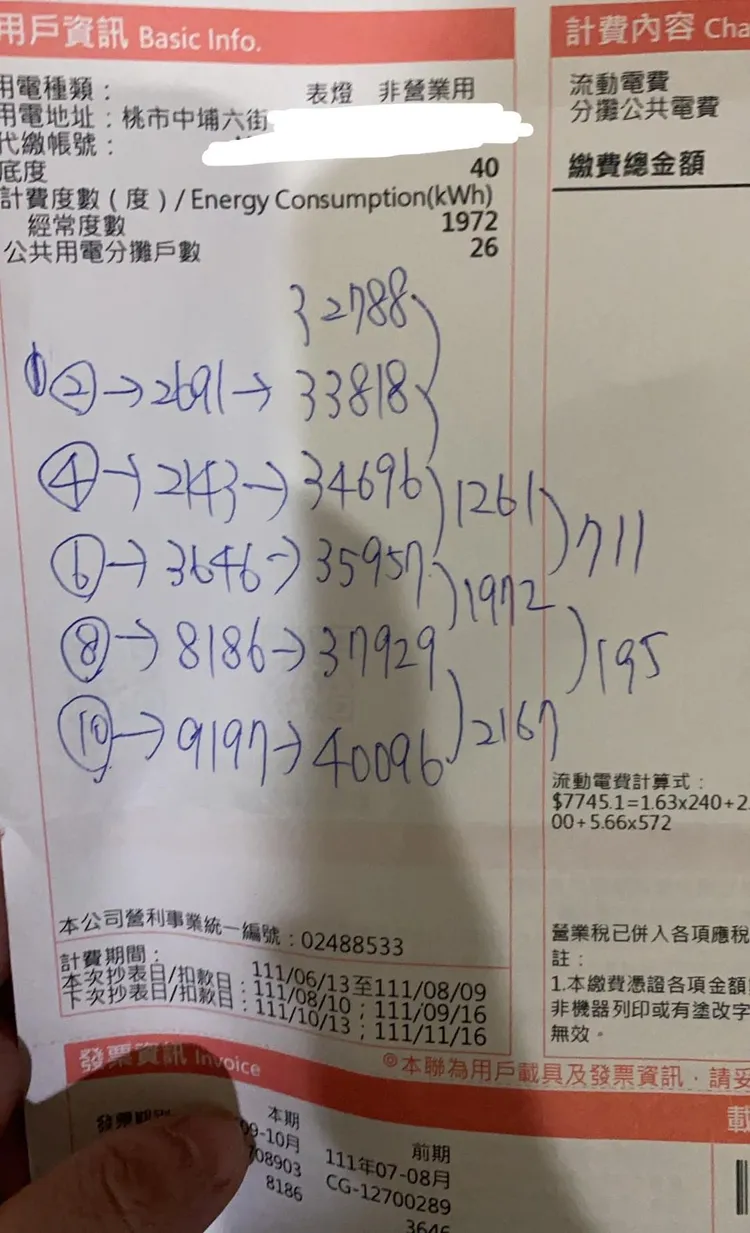 用戶資訊 Basic Info.
用電種類：
表燈 非營業用
用電地址：桃市中埔六街
代繳帳號：
底度
40
計費度數（度）/ Energy Consumption(kWh)
經常度數
1972
公共用電分攤戶數
26
計費內容 Cha
流動電費
分攤公共電費
繳費總金額
32788
② → 2691 → 33818
④ → 2143 → 34696
1261
711
⑥ → 3646 → 35957
1972
⑧ → 8186 → 37929
195
⑩ → 9197 → 40096
2167
流動電費計算式：
$7745.1=1.63x240+2.
00+5.66x572
本公司營利事業統一編號：02488533
計費期間：
111/06/13至111/08/09
本次抄表日/扣款日：111/08/10；111/09/16
下次抄表日/扣款日：111/10/13；111/11/16
營業稅已併入各項應稅
註：
1.本繳費憑證各項金額
非機器列印或有塗改字
無效。
發票資訊 Invoice
◎本聯為用戶載具及發票資訊，請妥
載
發票期別
本期
09-10月
708903
8186
前期
111年07-08月
CG-12700289
3646